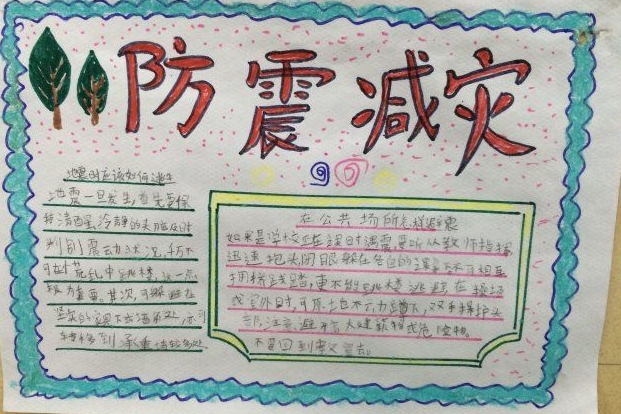 防震减灾
地震时应该如何逃生
地震一旦发生,首先要保
持清醒冷静的头脑及时
判别震动状况,千万不
可在慌乱中跳楼,这一点
极为重要。其次,可躲避在
坚实的家具下或墙角处,亦可
转移到承重墙较多处
在公共场所怎样避震
如果是学校正在上课时遇震要听从教师指挥
迅速抱头闭眼躲在各自的课桌下
拥挤践踏,更不能跳楼逃跑在操场
或室外时,可原地不动蹲下,双手保护头
部,注意避开高大建筑物或危险物。
不要回到教室去。